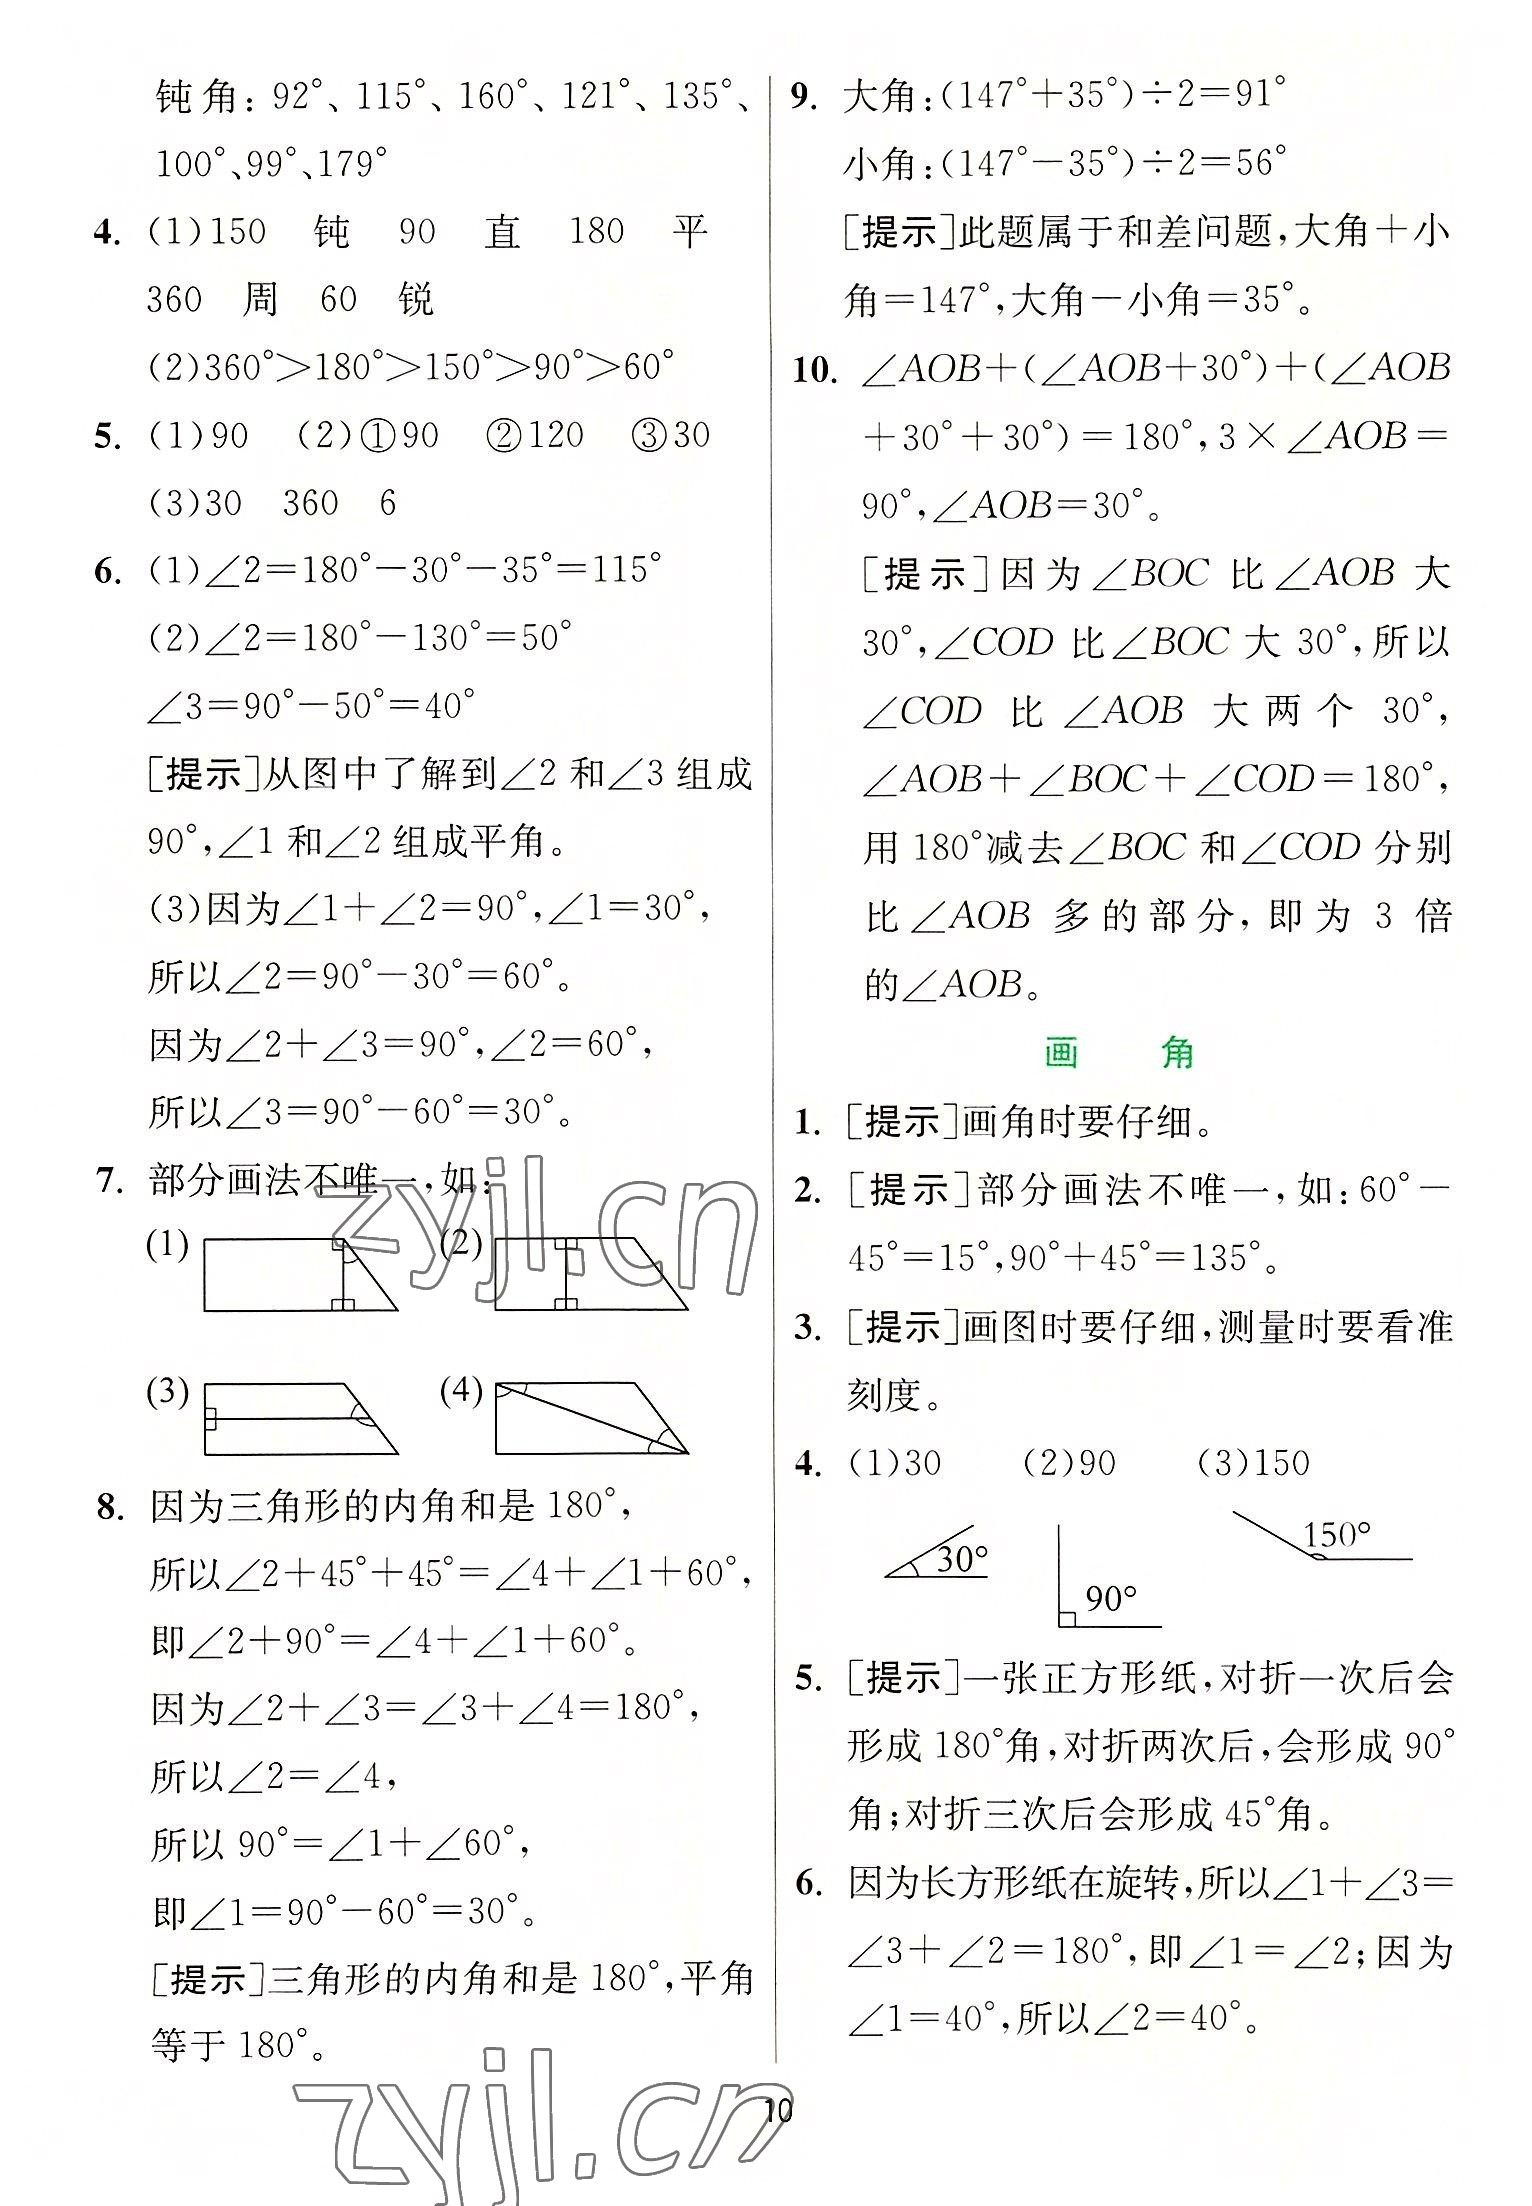 钝角：92°、115°、160°、121°、135°、
100°、99°、179°
4. (1)150 钝 90 直 180 平
360 周 60 锐
(2)360°＞180°＞150°＞90°＞60°
5. (1)90 (2)①90 ②120 ③30
(3)30 360 6
6. (1)∠2=180°－30°－35°=115°
(2)∠2=180°－130°=50°
∠3=90°－50°=40°
[提示]从图中了解到∠2和∠3组成
90°，∠1和∠2组成平角。
(3)因为∠1＋∠2=90°，∠1=30°，
所以∠2=90°－30°=60°。
因为∠2＋∠3=90°，∠2=60°，
所以∠3=90°－60°=30°。
7. 部分画法不唯一，如：
(1) (2)
(3) (4)
8. 因为三角形的内角和是180°，
所以∠2+45°+45°=∠4+∠1+60°，
即∠2+90°=∠4+∠1+60°。
因为∠2+∠3=∠3+∠4=180°，
所以∠2=∠4，
所以90°=∠1+∠60°，
即∠1=90°－60°=30°。
[提示]三角形的内角和是180°，平角
等于180°。
9. 大角：(147°+35°)÷2=91°
小角：(147°－35°)÷2=56°
[提示]此题属于和差问题，大角＋小
角=147°，大角－小角=35°。
10. ∠AOB+(∠AOB+30°)+(∠AOB
+30°+30°)=180°，3×∠AOB=
90°，∠AOB=30°。
[提示]因为∠BOC比∠AOB大
30°，∠COD比∠BOC大30°，所以
∠COD比∠AOB大两个30°，
∠AOB+∠BOC+∠COD=180°，
用180°减去∠BOC和∠COD分别
比∠AOB多的部分，即为3倍
的∠AOB。
画 角
1. [提示]画角时要仔细。
2. [提示]部分画法不唯一，如：60°－
45°=15°，90°+45°=135°。
3. [提示]画图时要仔细，测量时要看准
刻度。
4. (1)30 (2)90 (3)150
30° 90° 150°
5. [提示]一张正方形纸，对折一次后会
形成180°角，对折两次后，会形成90°
角；对折三次后会形成45°角。
6. 因为长方形纸在旋转，所以∠1+∠3=
∠3+∠2=180°，即∠1=∠2；因为
∠1=40°，所以∠2=40°。
zyjl.cn
zyjl.cn
10